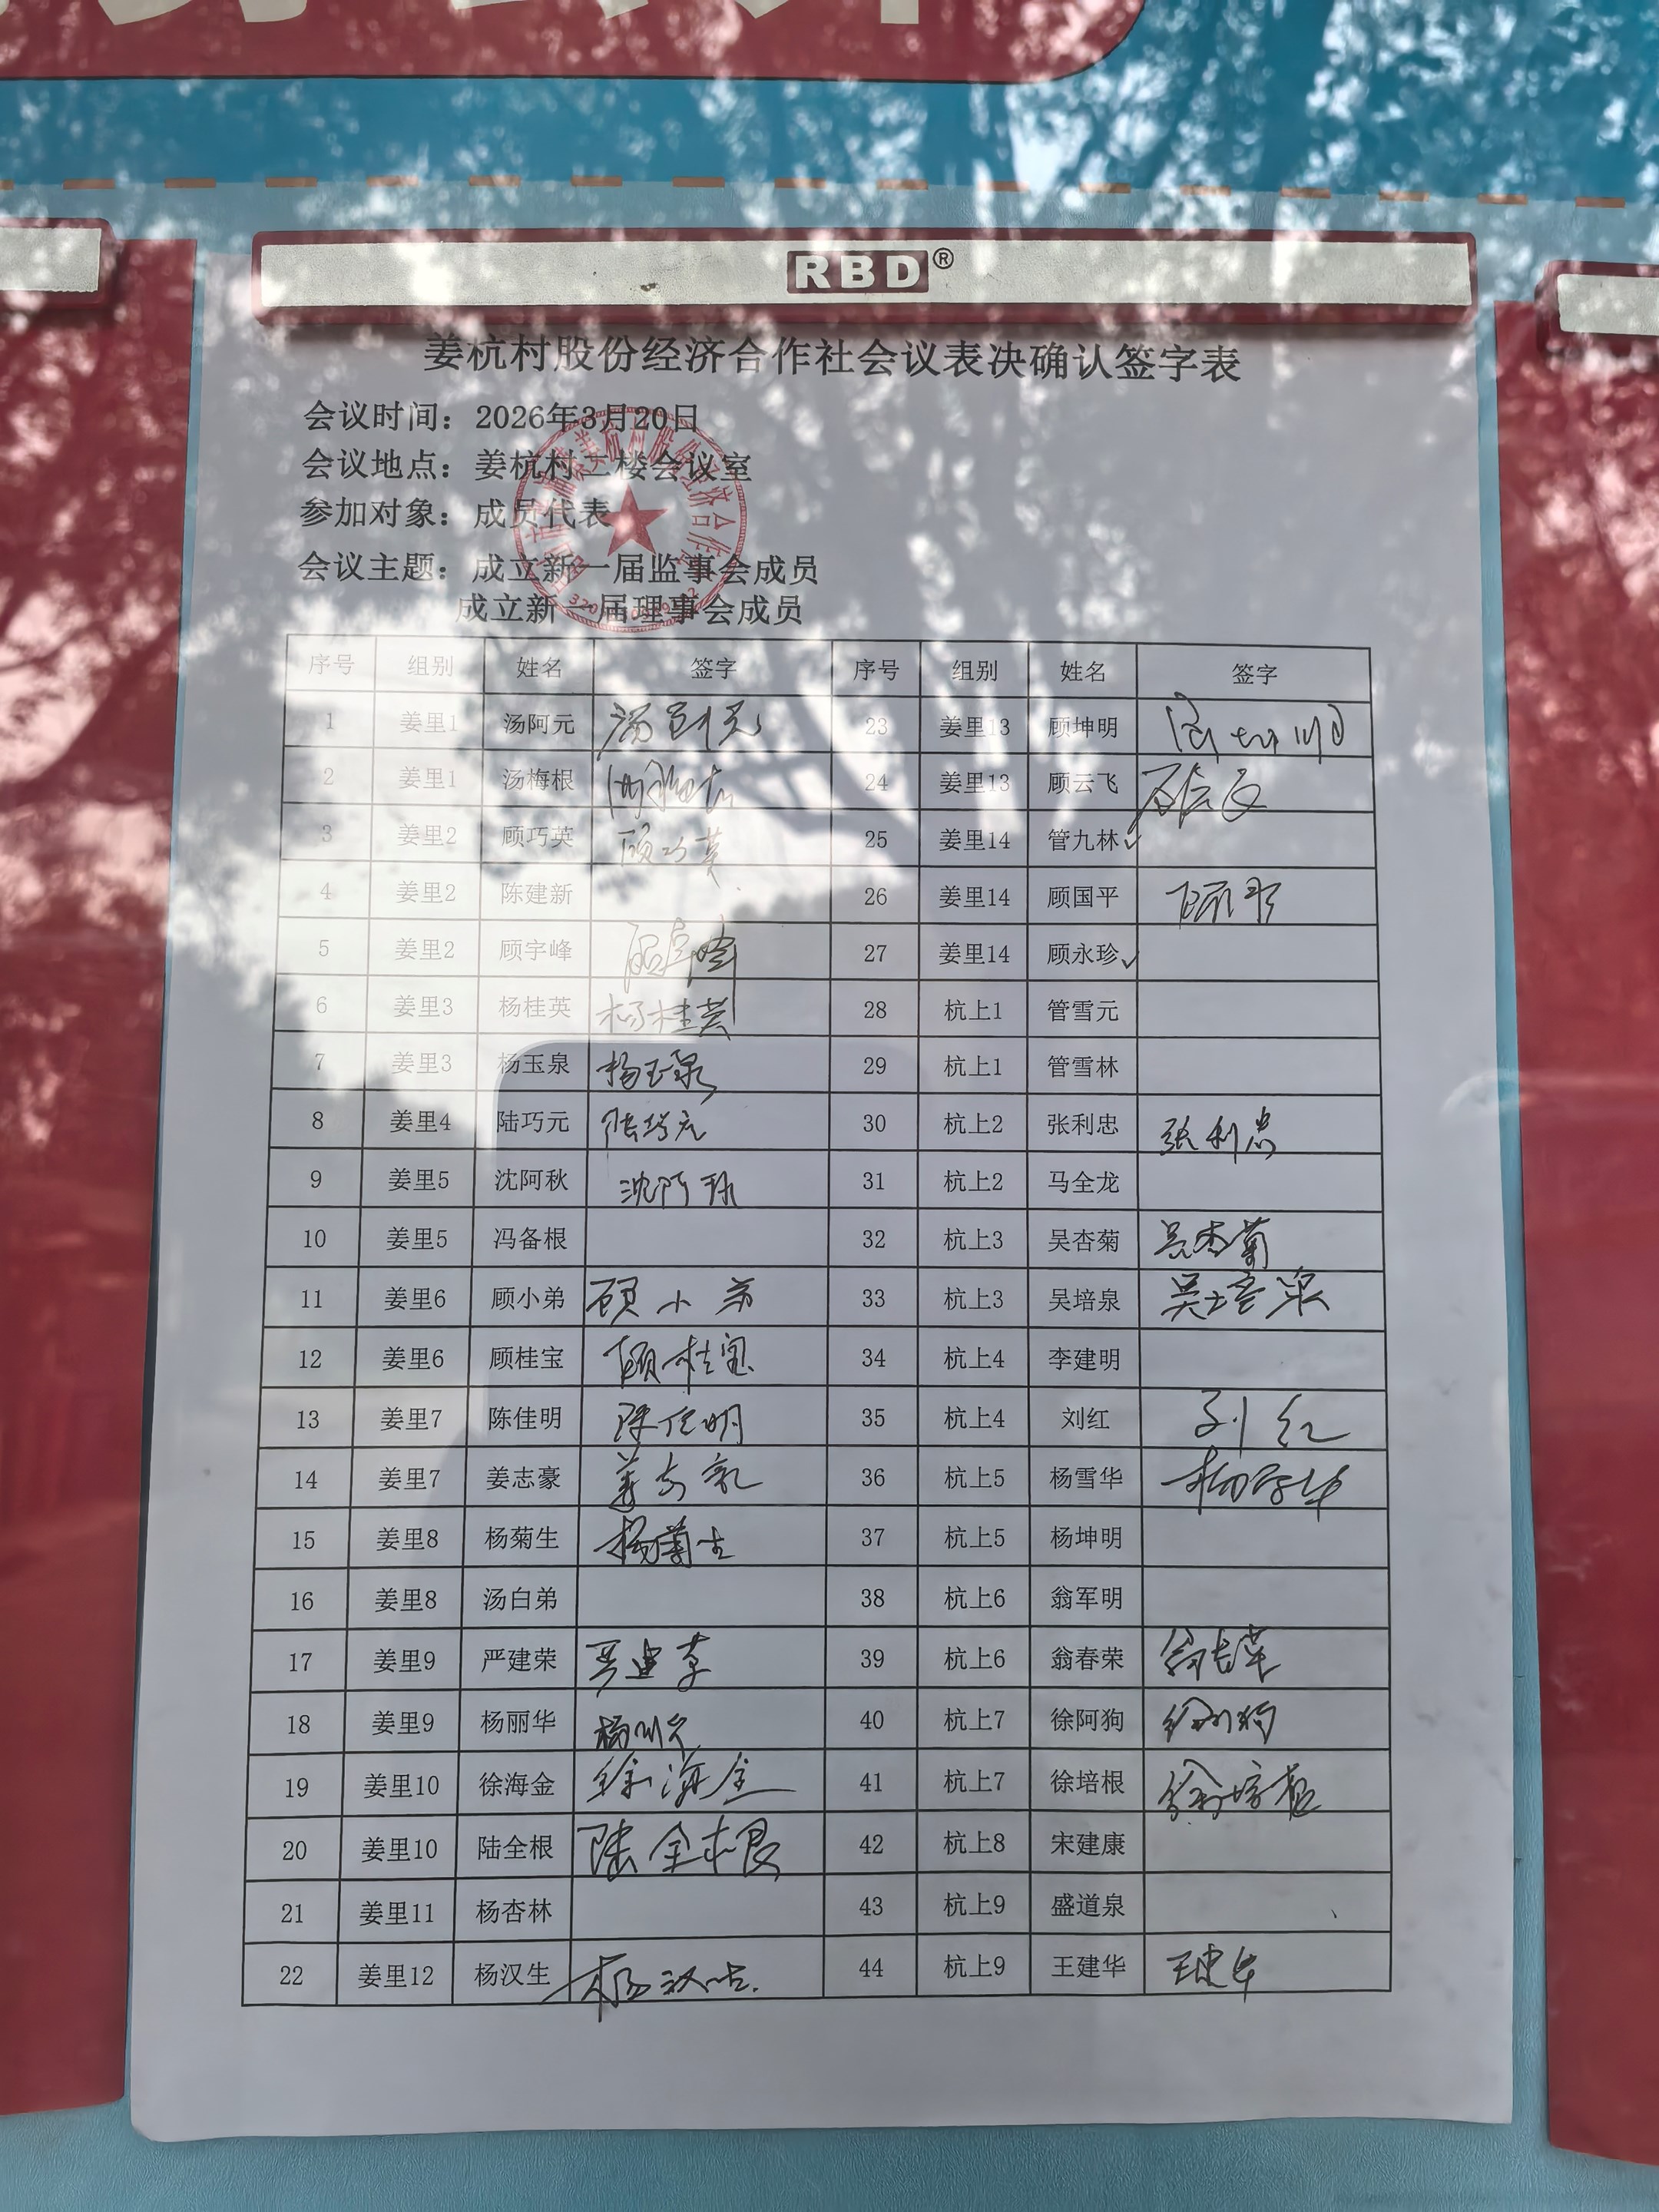 RBD®
姜杭村股份经济合作社会议表决确认签字表
会议时间：2026年3月20日
会议地点：姜杭村二楼会议室
参加对象：成员代表
会议主题：成立新一届监事会成员
成立新一届理事会成员
序号 组别 姓名 签字 序号 组别 姓名 签字
1 姜里1 汤阿元 汤阿元 23 姜里13 顾坤明 顾坤明
2 姜里1 汤梅根 汤梅根 24 姜里13 顾云飞 顾云飞
3 姜里2 顾巧英 顾巧英 25 姜里14 管九林 ✓
4 姜里2 陈建新 26 姜里14 顾国平 顾国平
5 姜里2 顾宇峰 顾宇峰 27 姜里14 顾永珍 ✓
6 姜里3 杨桂英 杨桂英 28 杭上1 管雪元
7 姜里3 杨玉泉 杨玉泉 29 杭上1 管雪林
8 姜里4 陆巧元 陆巧元 30 杭上2 张利忠 张利忠
9 姜里5 沈阿秋 沈阿秋 31 杭上2 马全龙
10 姜里5 冯备根 32 杭上3 吴杏菊 吴杏菊
11 姜里6 顾小弟 顾小弟 33 杭上3 吴培泉 吴培泉
12 姜里6 顾桂宝 顾桂宝 34 杭上4 李建明
13 姜里7 陈佳明 陈佳明 35 杭上4 刘红 刘红
14 姜里7 姜志豪 姜志豪 36 杭上5 杨雪华 杨雪华
15 姜里8 杨菊生 杨菊生 37 杭上5 杨坤明
16 姜里8 汤白弟 38 杭上6 翁军明
17 姜里9 严建荣 严建荣 39 杭上6 翁春荣 翁春荣
18 姜里9 杨丽华 杨丽华 40 杭上7 徐阿狗 徐阿狗
19 姜里10 徐海金 徐海金 41 杭上7 徐培根 徐培根
20 姜里10 陆全根 陆全根 42 杭上8 宋建康
21 姜里11 杨杏林 43 杭上9 盛道泉
22 姜里12 杨汉生 杨汉生 44 杭上9 王建华 王建华